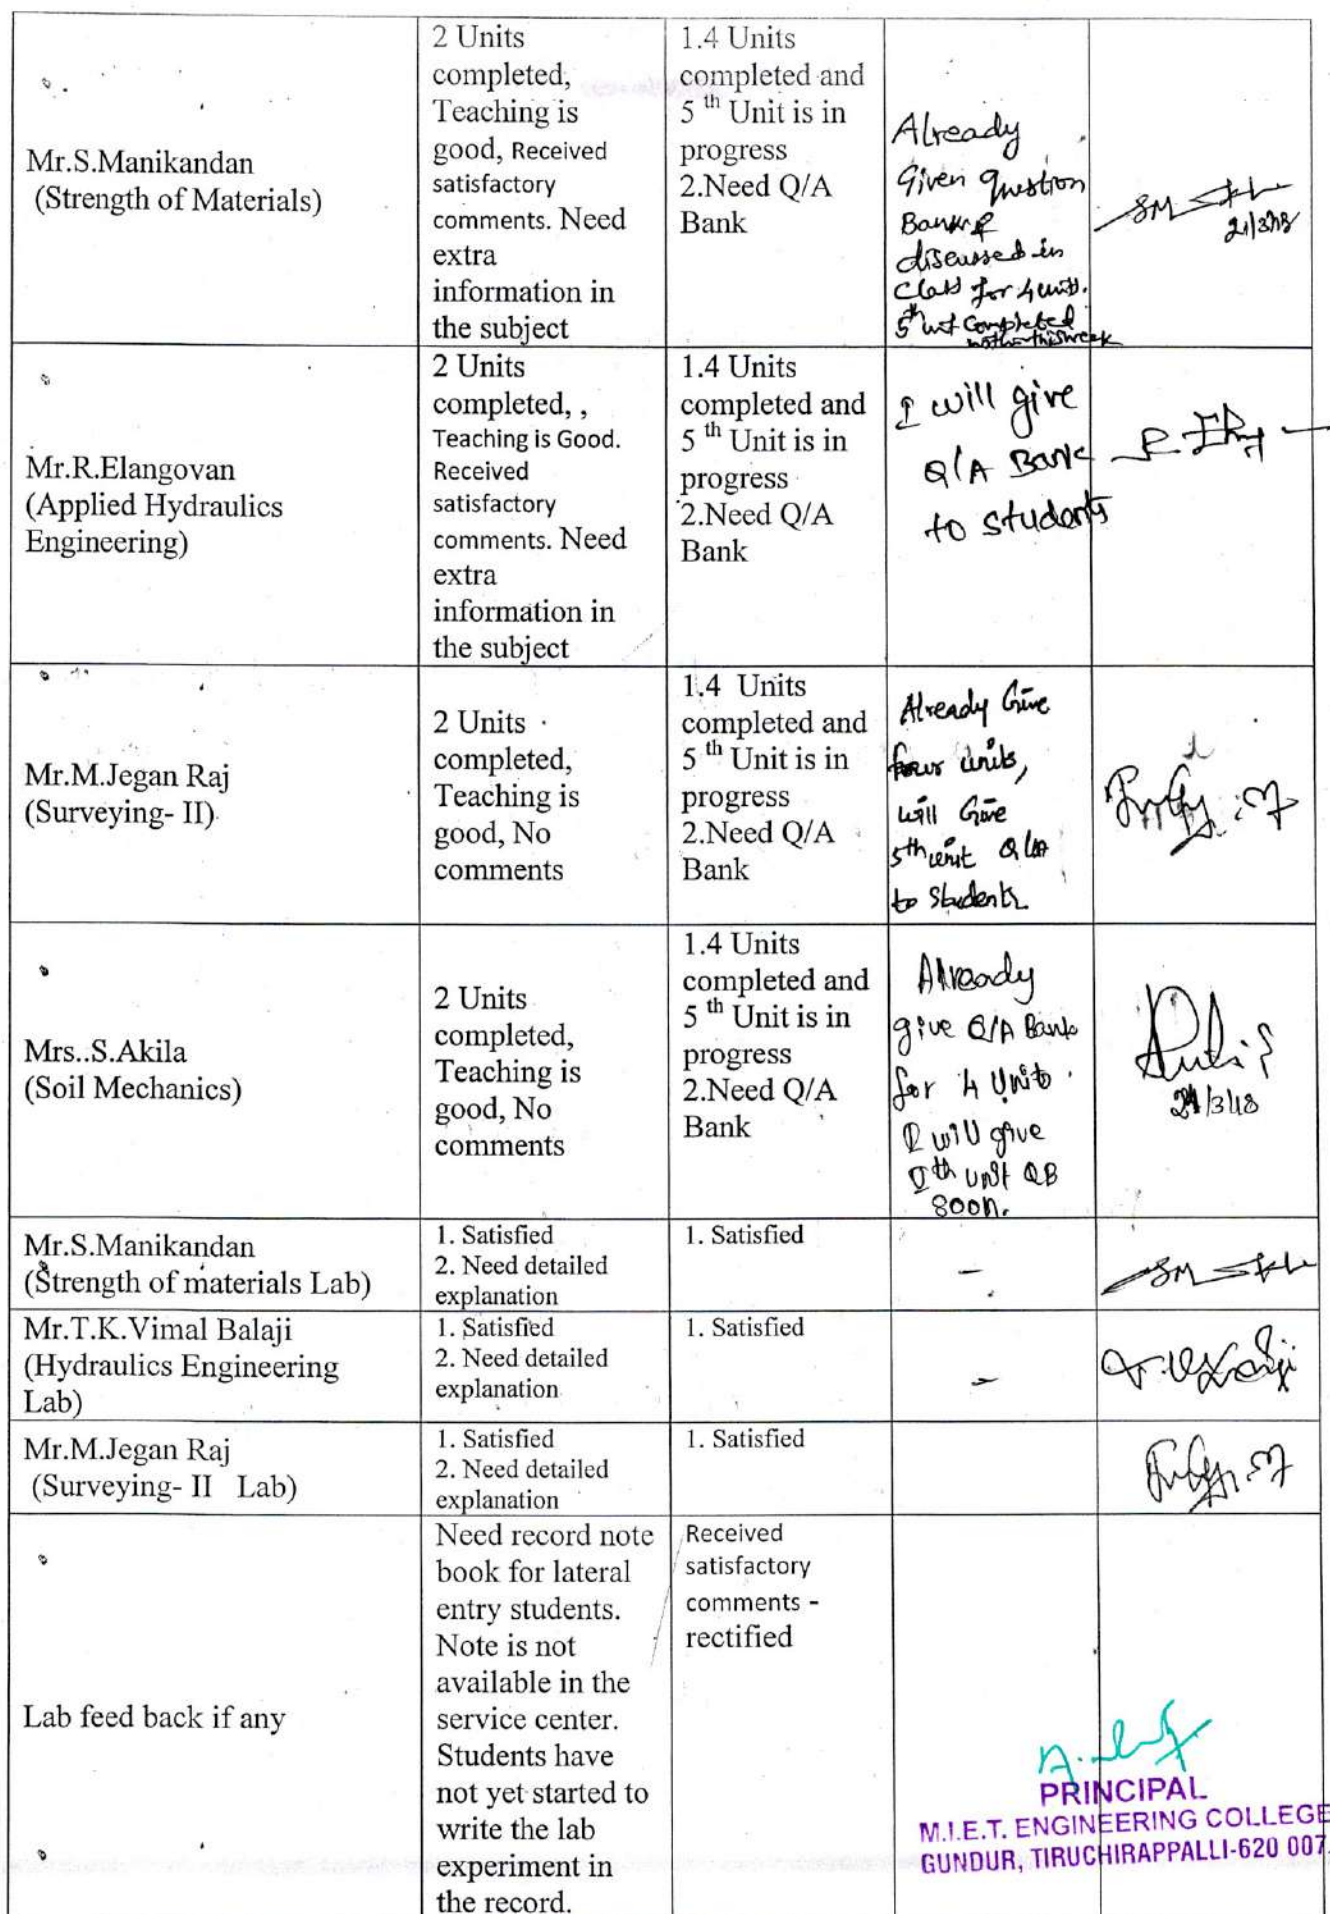 Mr.S.Manikandan
(Strength of Materials)
2 Units
completed,
Teaching is
good, Received
satisfactory
comments. Need
extra
information in
the subject
1.4 Units
completed and
5 th Unit is in
progress
2.Need Q/A
Bank
Already
Given question
Bank &
discussed in
class for 4 units.
5th unit completed
within this week
21/3/18
Mr.R.Elangovan
(Applied Hydraulics
Engineering)
2 Units
completed, ,
Teaching is Good.
Received
satisfactory
comments. Need
extra
information in
the subject
1.4 Units
completed and
5 th Unit is in
progress
2.Need Q/A
Bank
I will give
Q/A Bank
to students
Mr.M.Jegan Raj
(Surveying- II)
2 Units
completed,
Teaching is
good, No
comments
1.4 Units
completed and
5 th Unit is in
progress
2.Need Q/A
Bank
Already Give
four units,
will Give
5th unit Q/A
to Students
Mrs..S.Akila
(Soil Mechanics)
2 Units
completed,
Teaching is
good, No
comments
1.4 Units
completed and
5 th Unit is in
progress
2.Need Q/A
Bank
Already
give Q/A Bank
for 4 Units.
I will give
Vth unit QB
soon.
21/3/18
Mr.S.Manikandan
(Strength of materials Lab)
1. Satisfied
2. Need detailed
explanation
1. Satisfied
-
Mr.T.K.Vimal Balaji
(Hydraulics Engineering
Lab)
1. Satisfied
2. Need detailed
explanation
1. Satisfied
-
Mr.M.Jegan Raj
(Surveying- II Lab)
1. Satisfied
2. Need detailed
explanation
1. Satisfied
Lab feed back if any
Need record note
book for lateral
entry students.
Note is not
available in the
service center.
Students have
not yet started to
write the lab
experiment in
the record.
Received
satisfactory
comments -
rectified
PRINCIPAL
M.I.E.T. ENGINEERING COLLEGE
GUNDUR, TIRUCHIRAPPALLI-620 007.